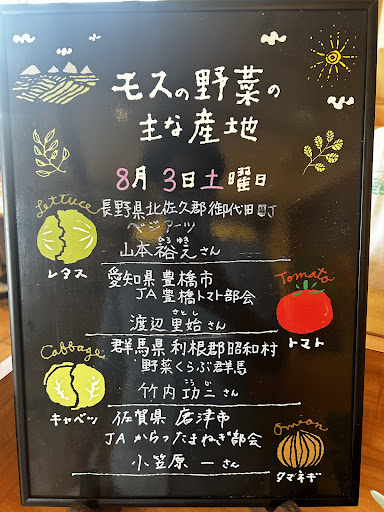 モスの野菜の
主な産地
8月 3日土曜日
Lettuce
レタス
長野県北佐久郡御代田町
ベジアーツ
ゆうき
山本裕之さん
愛知県豊橋市
JA豊橋トマト部会
さとし
渡辺里始さん
Tomato
トマト
Cabbage
キャベツ
群馬県利根郡昭和村
野菜くらぶ群馬
こうじ
竹内功二さん
佐賀県唐津市
JAからつたまねぎ部会
小笠原一さん
Onion
タマネギ